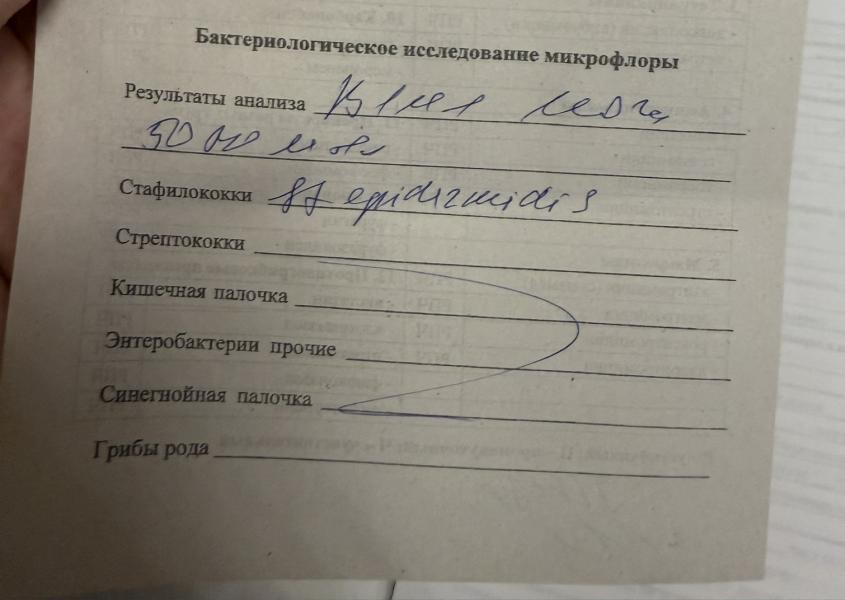 Бактериологическое исследование микрофлоры
Результаты анализа В 1 мл мочи
5000 м.т.
Стафилококки St epidermidis
Стрептококки
Кишечная палочка
Энтеробактерии прочие
Синегнойная палочка
Грибы рода